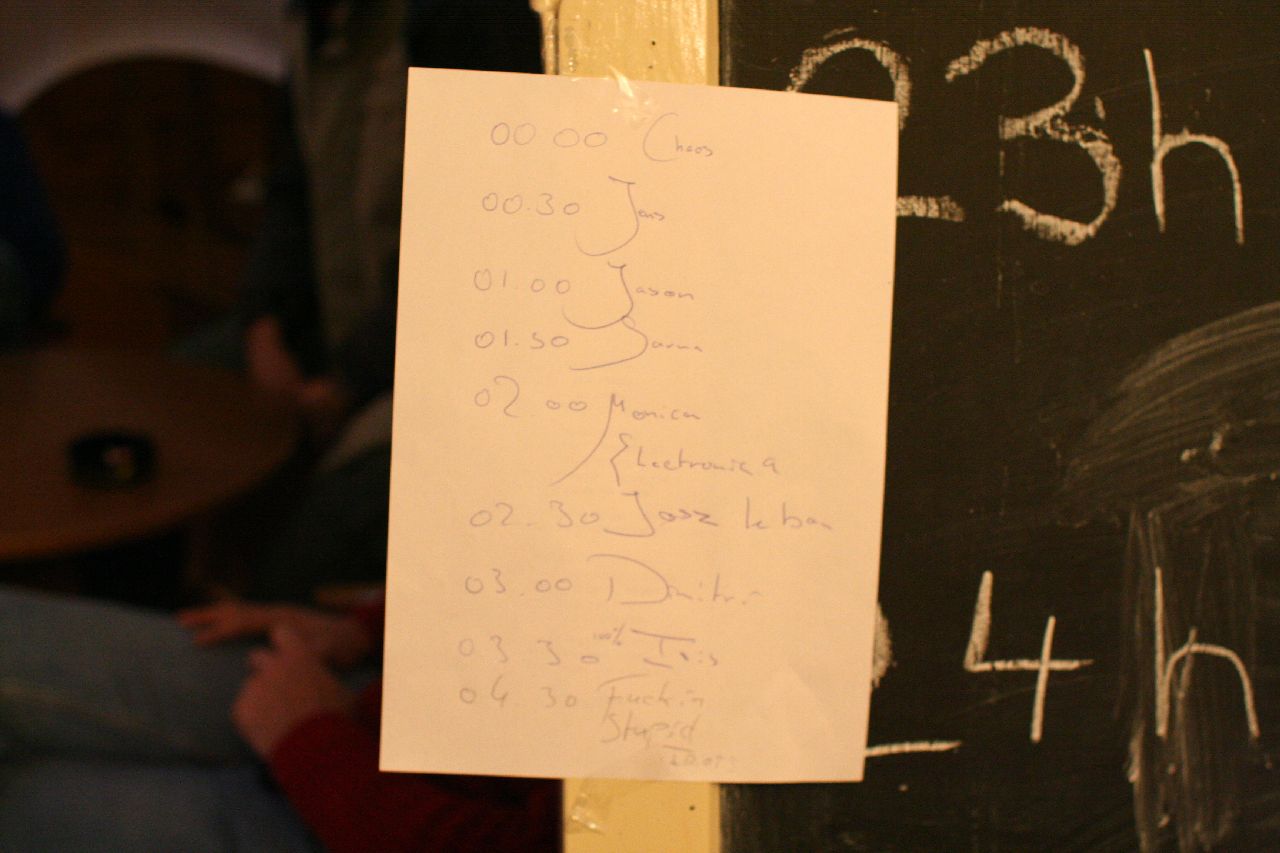 00 00 Chaos
00.30 Joris
01.00 Jason
01.30
02.00 Monica
Electronica
02.30
03.00 Dmitri
03 30 100% Iris
04.30 Fuckin
Stupid
Idiots
23h
4h